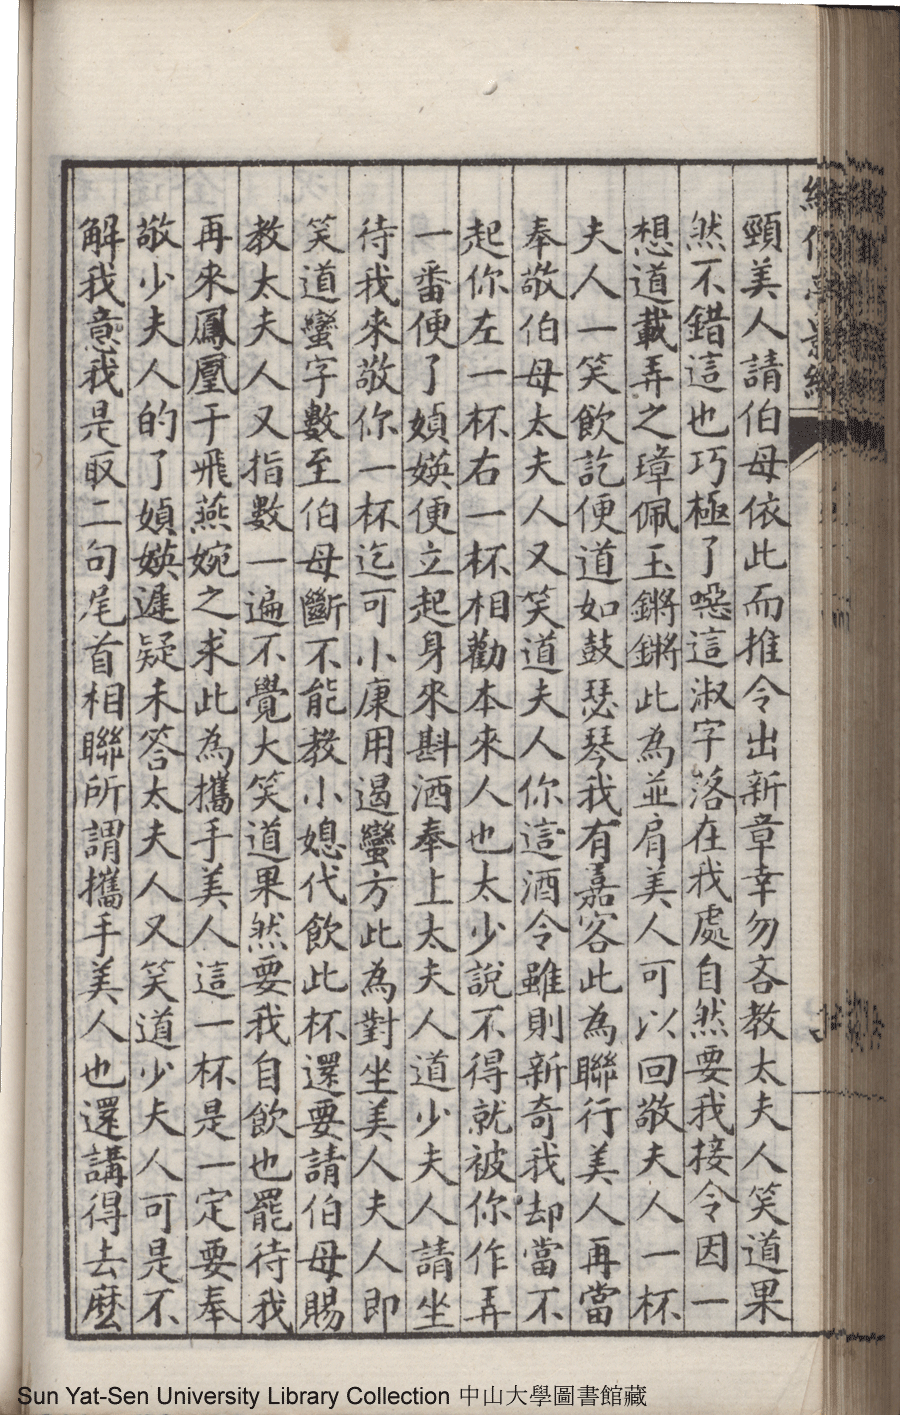 頸美人請伯母依此而推令出新章幸勿吝教太夫人笑道果
然不錯這也巧極了噁這淑字落在我處自然要我接令因一
想道載弄之璋佩玉鏘鏘此為並肩美人可以回敬夫人一杯
夫人一笑飲訖便道如鼓瑟琴我有嘉客此為聯行美人再當
奉敬伯母太夫人又笑道夫人你這酒令雖則新奇我却當不
起你左一杯右一杯相勸本來人也太少說不得就被你作弄
一番便了媜媖便立起身來斟酒奉上太夫人道少夫人請坐
待我來敬你一杯迄可小康用遏蠻方此為對坐美人夫人即
笑道蠻字數至伯母斷不能教小媳代飲此杯還要請伯母賜
教太夫人又指數一遍不覺大笑道果然要我自飲也罷待我
再來鳳凰于飛燕婉之求此為攜手美人這一杯是一定要奉
敬少夫人的了媜媖遲疑未答太夫人又笑道少夫人可是不
解我意我是取二句尾首相聯所謂攜手美人也還講得去麼
Sun Yat-Sen University Library Collection 中山大學圖書館藏